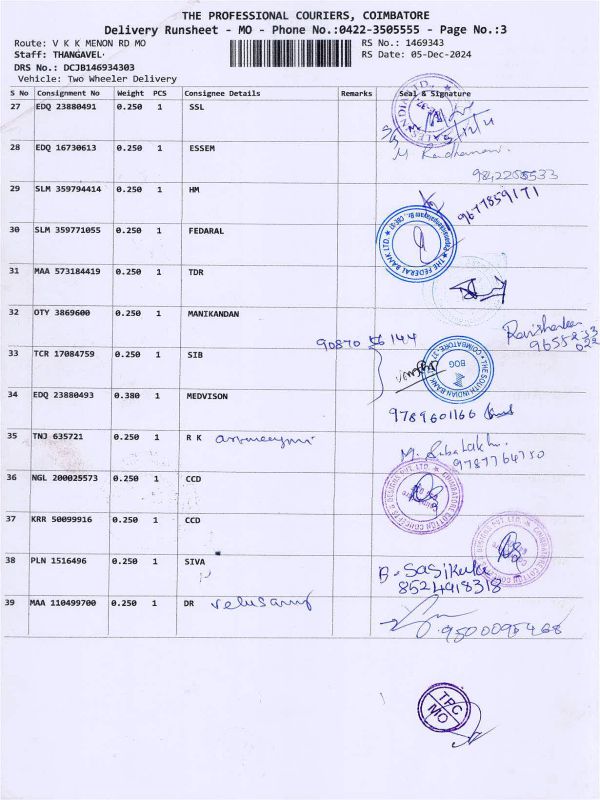 THE PROFESSIONAL COURIERS, COIMBATORE
Delivery Runsheet - MO - Phone No.:0422-3505555 - Page No.:3
Route: V K K MENON RD MO RS No.: 1469343
Staff: THANGAVEL. RS Date: 05-Dec-2024
DRS No.: DCJB146934303
Vehicle: Two Wheeler Delivery
S No Consignment No Weight PCS Consignee Details Remarks Seal & Signature
27 EDQ 23880491 0.250 1 SSL
5/12/24
28 EDQ 16730613 0.250 1 ESSEM
9842255533
29 SLM 359794414 0.250 1 HM 9677859171
30 SLM 359771055 0.250 1 FEDARAL
THE FEDERAL BANK LTD.
31 MAA 573184419 0.250 1 TDR
32 OTY 3869600 0.250 1 MANIKANDAN
90870 56 144
33 TCR 17084759 0.250 1 SIB
THE SOUTH INDIAN BANK COIMBATORE BOG
34 EDQ 23880493 0.380 1 MEDVISON
9789601166
35 TNJ 635721 0.250 1 R K
9787764750
36 NGL 200025573 0.250 1 CCD
COIMBATORE COTTON CONCEPTS & DESIGNS PVT. LTD.
37 KRR 50099916 0.250 1 CCD
COIMBATORE COTTON DESIGNS PVT. LTD.
38 PLN 1516496 0.250 1 SIVA
8524918318
39 MAA 110499700 0.250 1 DR velusamy
9500095468
TPC
MO